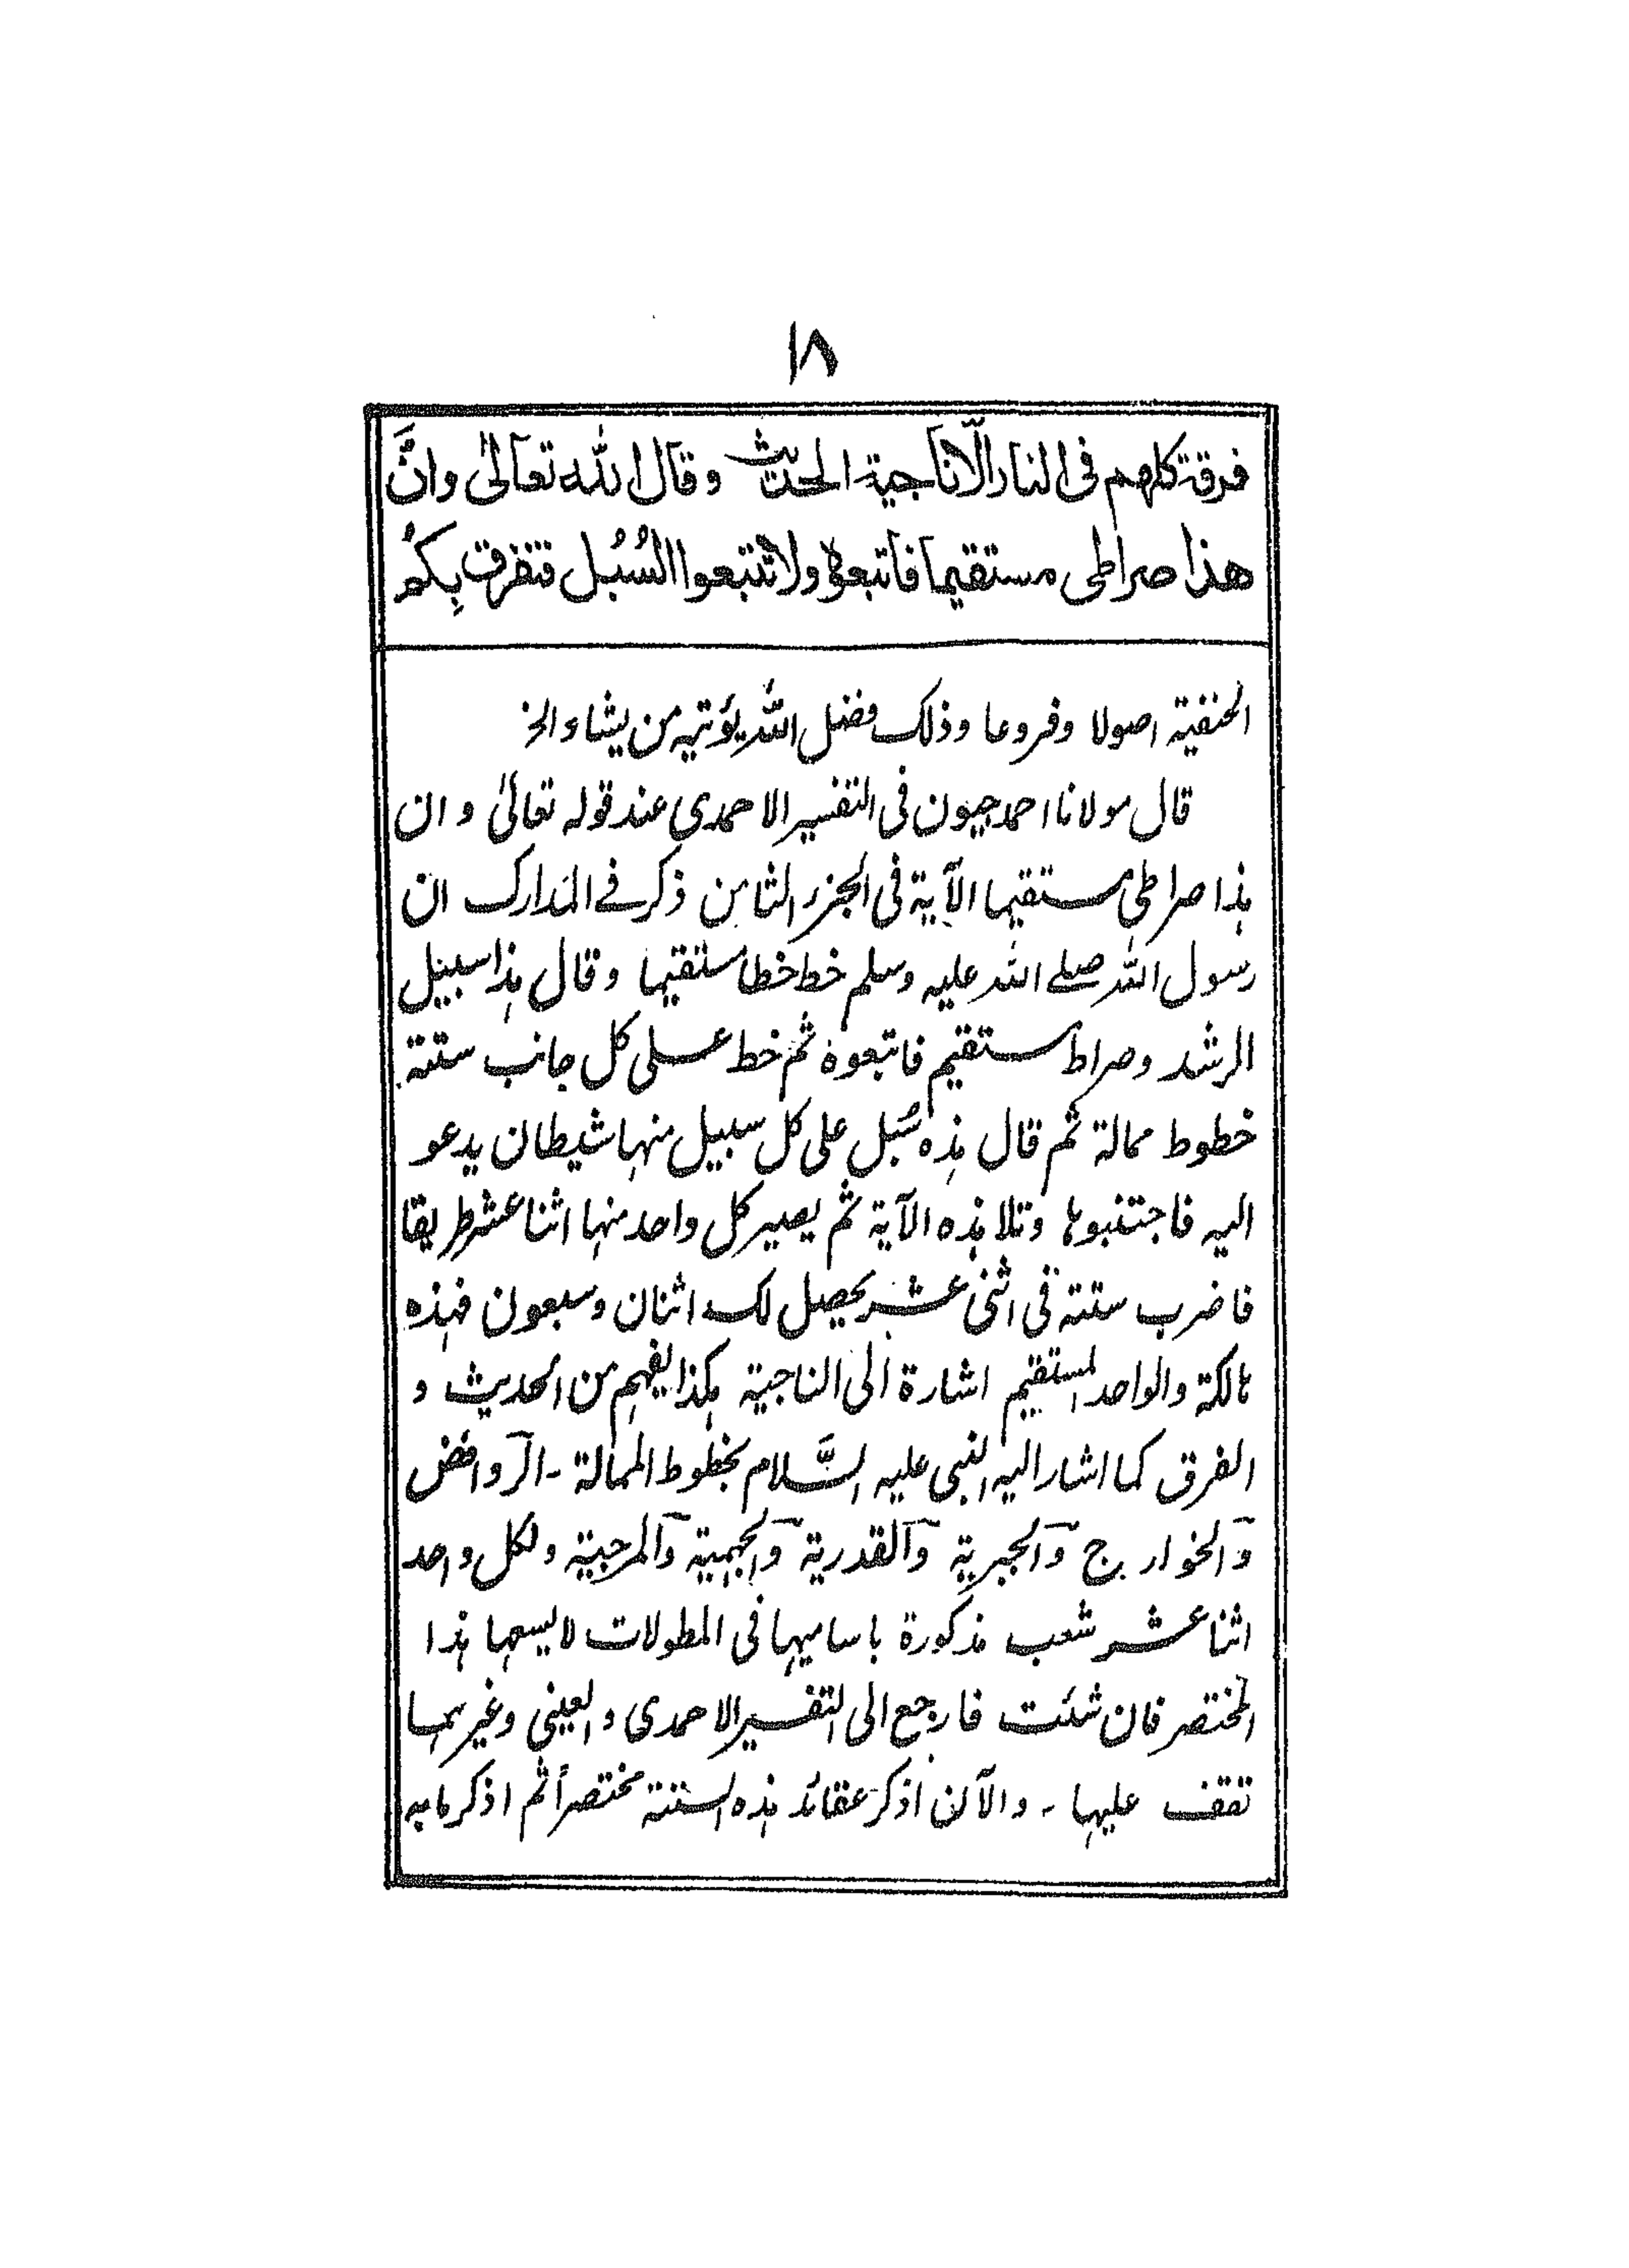 ١٨
فرقة كلهم فى النار الّا ناجية الحديث وقال الله تعالىٰ وانَّ
هذا صراطى مستقيما فاتبعوه ولا تتبعوا السُبُل فتفرق بِكمُ
الحنفية اصولا وفروعا وذلك فضل اللّٰه يؤتيه من يشاء الخ
قال مولانا احمد جيون فى التفسير الاحمدى عند قوله تعالىٰ و ان
هذا صراطى مستقيما الآية فى الجزء الثامن ذكر فے المدارك ان
رسول اللّٰه صلے اللّٰه عليه وسلم خط خطا مستقيما وقال هذا سبيل
الرشد وصراط مستقيم فاتبعوه ثم خط على كل جانب ستة
خطوط ممالة ثم قال هذه سُبل على كل سبيل منها شيطان يدعو
اليه فاجتنبوها وتلا هذه الآية ثم يصير كل واحد منها اثنا عشر طريقا
فاضرب ستة فى اثنى عشر يحصل لك اثنان وسبعون فهذه
هالكة والواحد المستقيم اشارة الى الناجية هكذا يفهم من الحديث و
الفرق كما اشار اليه النبى عليه السَّلام بخطوط الممالة ـ الروافض
والخوارج والجبرية والقدرية والجهمية والمرجية ولكل واحد
اثنا عشر شعب مذكورة باساميها فى المطولات لا يسعها هذا
المختصر فان شئت فارجع الى التفسير الاحمدى والعينى وغيرهما
تقف عليها ـ والآن اذكر عقائد هذه الستة مختصراً ثم اذكر ما به